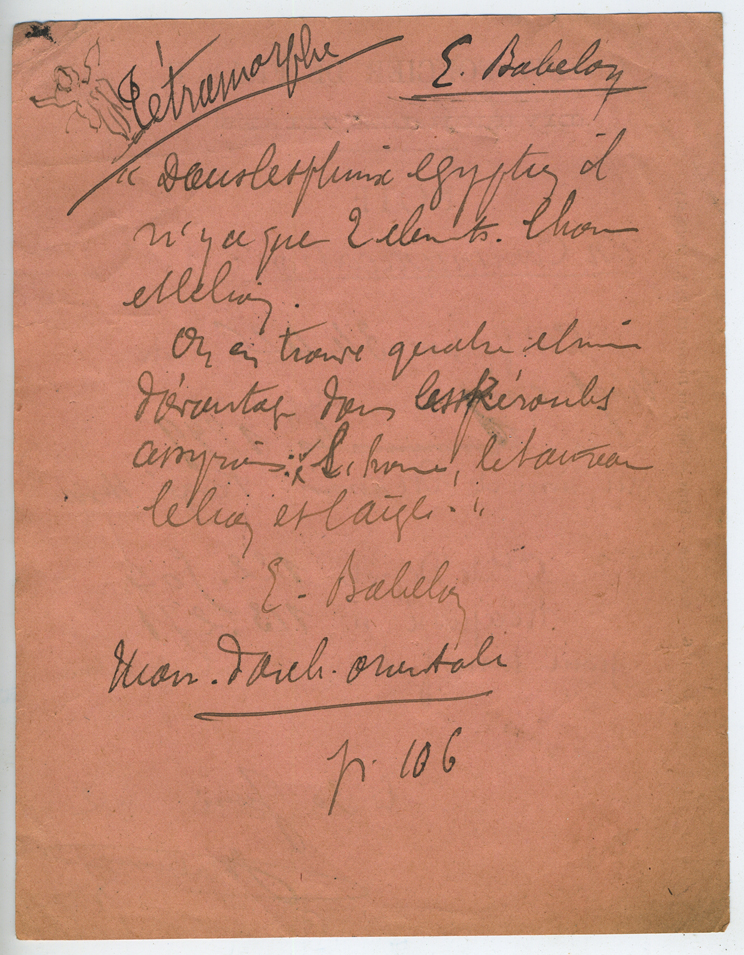 Tétramorphe
E. Babelon
« Dans les sphinx egyptien il
n'y a que 2 elements. L'hom
et le lion.
On en trouve quatre
davantage dans les Kéroubs
assyriens : L'homme, le taureau
le lion et l'aigle. »
E. Babelon
Man. d'arch. orientale
p. 106